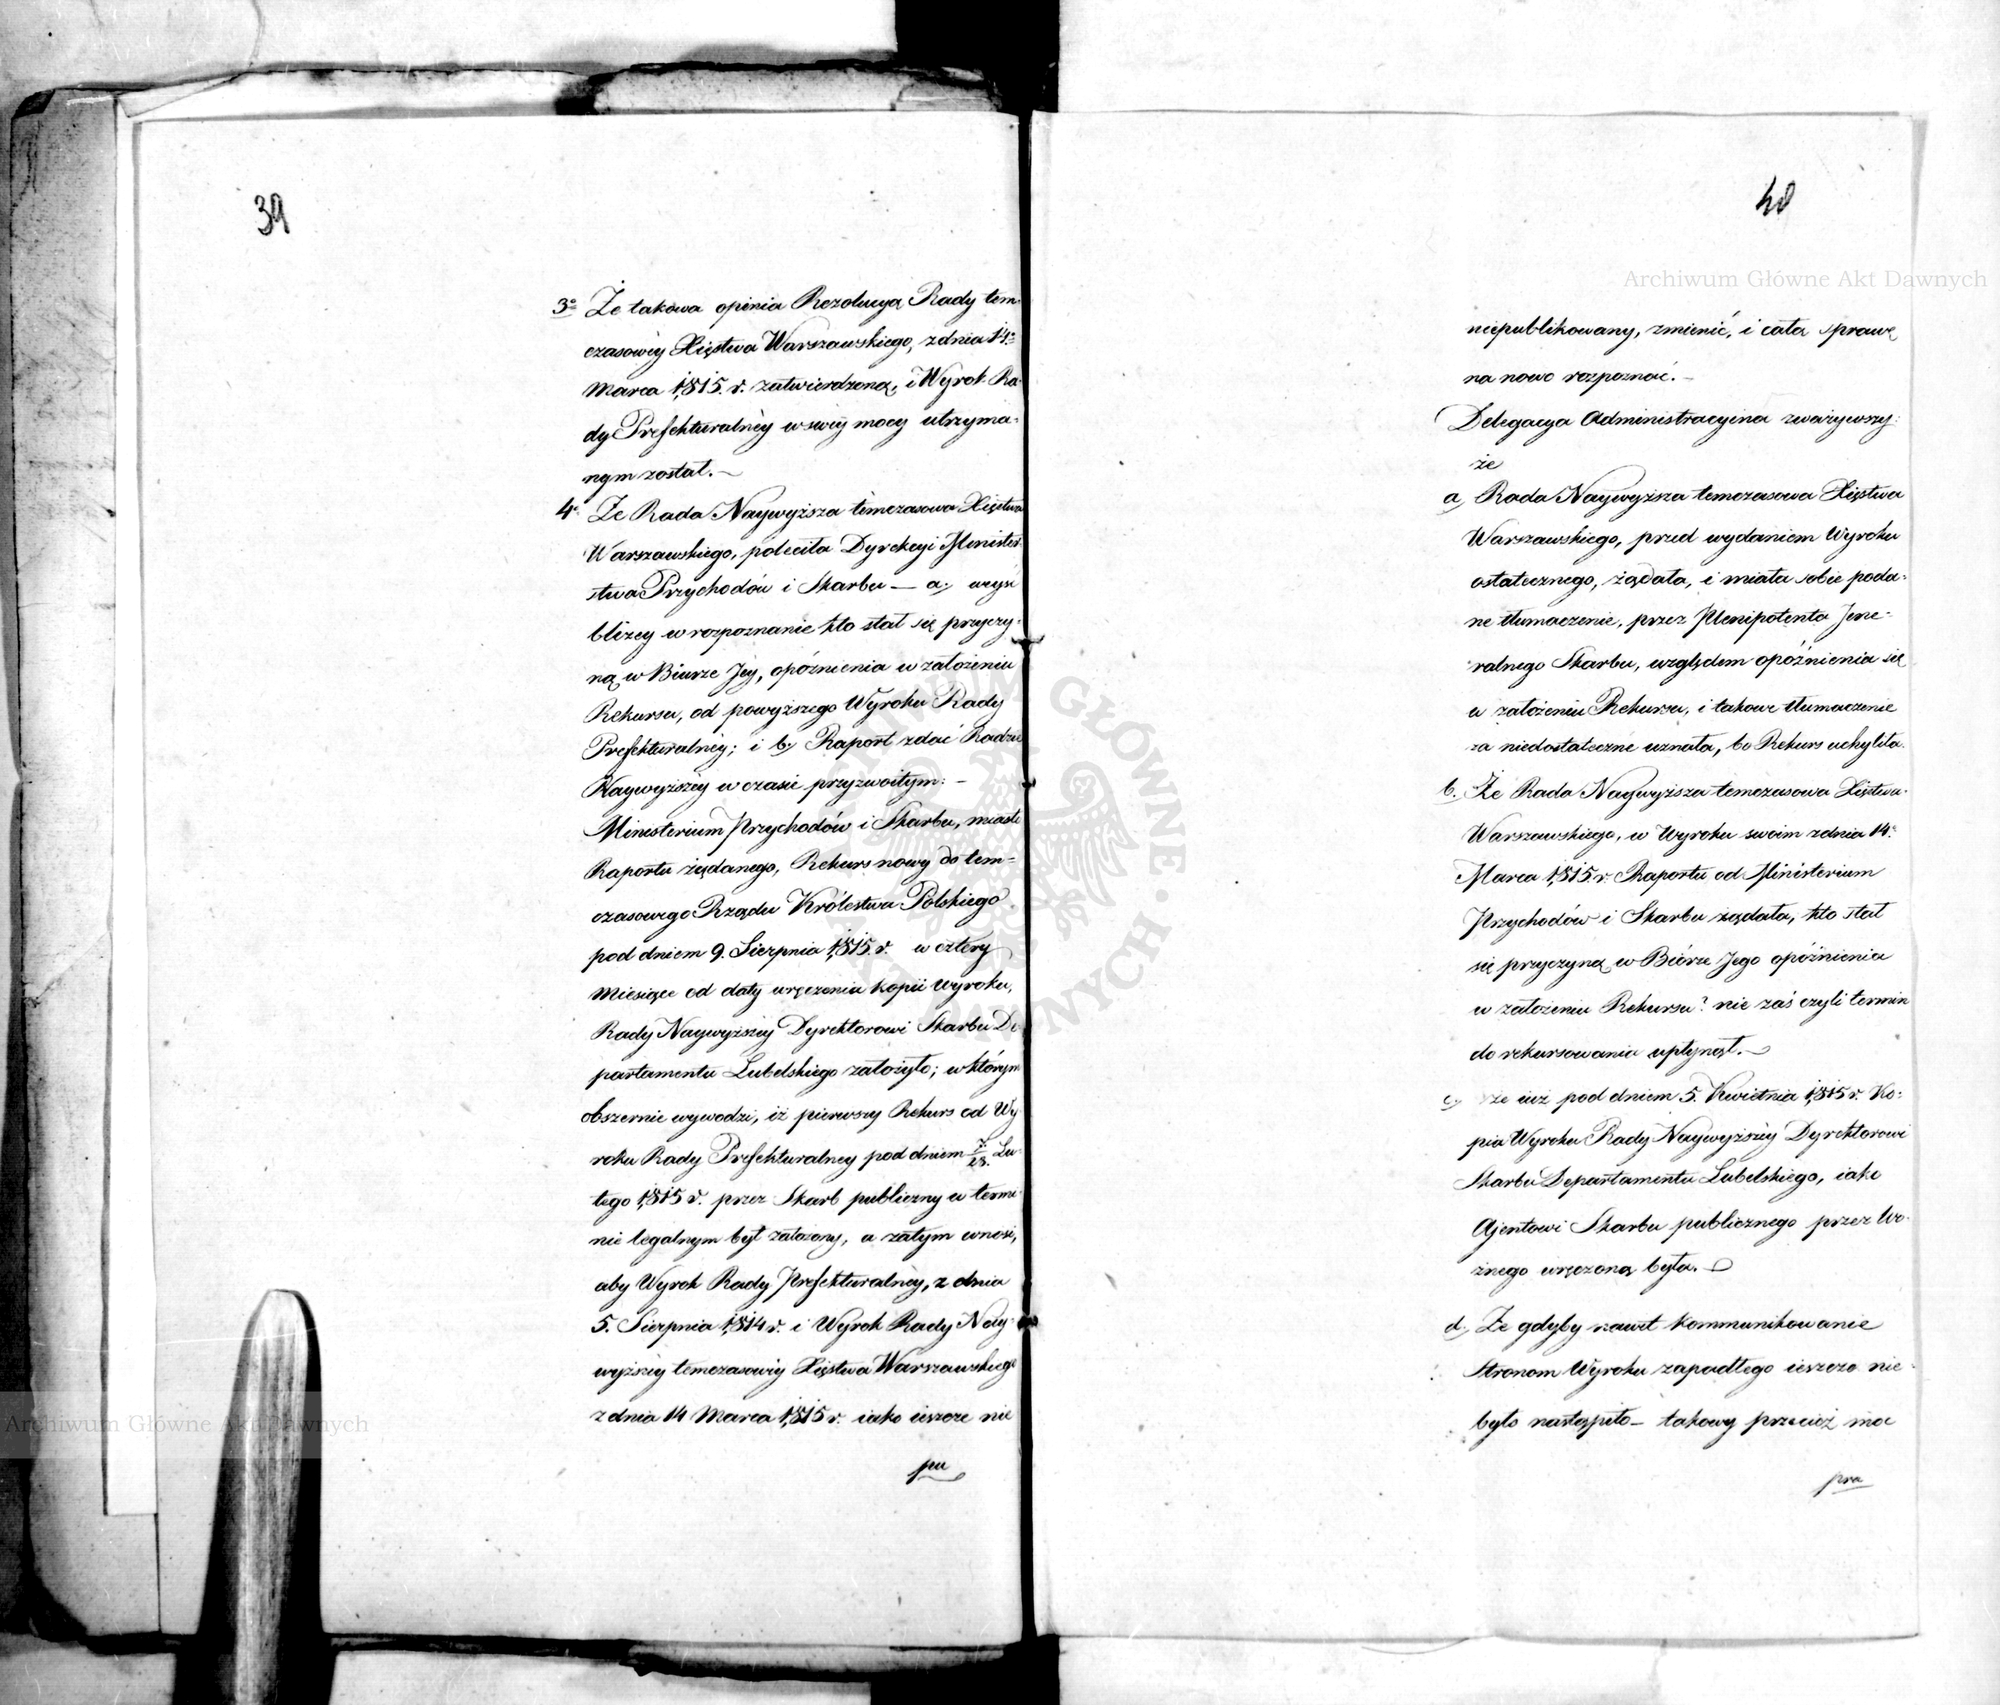 39
3° Że takowa opinia Rezolucyą Rady tem-
czasowéy Xięstwa Warszawskiego, z dnia 14°
Marca 1,815. r. zatwierdzoną, i Wyrok Ra-
dy Prefekturalnéy w swéy mocy utrzyma-
nym został.—
4° Że Rada Naywyższa temczasowa Xięstwa
Warszawskiego, poleciła Dyrekcyi Minister-
stwa Przychodów i Skarbu — a.)
bliżey w rozpoznanie kto stał się przyczy-
ną w Biurze Jey, opóźnienia w założeniu
Rekursu, od powyższego Wyroku Rady
Prefekturalnéy; i b.) Raport zdać Radzie
Naywyższéy w czasie przyzwoitym: —
Ministerium Przychodów i Skarbu, miast
Raportu żądanego, Rekurs nowy do tem-
czasowego Rządu Królestwa Polskiego
pod dniem 9. Sierpnia 1,815. r. w cztery
Miesiące od daty wręczenia kopii Wyroku,
Rady Naywyższéy Dyrektorowi Skarbu De
partamentu Lubelskiego założyło; w którym
obszernie wywodzi, iż pierwszy Rekurs od Wy
roku Rady Prefekturalney pod dniem 7/23. Lu-
tego 1,815 r. przez Skarb publiczny w termi-
nie legalnym był założony, a zatym wnosi,
aby Wyrok Rady Prefekturalnéy, z dnia
5. Sierpnia 1,814 r. i Wyrok Rady Nay-
wyższéy temczasowéy Xięstwa Warszawskiego
z dnia 14 Marca 1,815 r. iako ieszcze nie
pu
40
niepublikowany, zmienić, i całą sprawę
na nowo rozpoznać.—
Delegacya Administracyina zważywszy:
że
a, Rada Naywyższa temczasowa Xięstwa
Warszawskiego, przed wydaniem Wyroku
ostatecznego, żądała, i miała sobie poda-
ne tłumaczenie, przez Plenipotenta Jene-
ralnego Skarbu, względem opóźnienia się
w założeniu Rekursu, i takowe tłumaczenie
za niedostateczne uznała, bo Rekurs uchyliła.
b. Że Rada Naywyższa temczasowa Xięstwa
Warszawskiego, w Wyroku swoim z dnia 14°
Marca 1,815 r. Raportu od Ministerium
Przychodów i Skarbu żądała, kto stał
się przyczyną w Biórze Jego opóźnienia
w założeniu Rekursu? nie zaś czyli termin
do rekursowania upłynął.—
c, że iuż pod dniem 5. Kwietnia 1,815 r. Ko-
pia Wyroku Rady Naywyższéy Dyrektorowi
Skarbu Departamentu Lubelskiego, iako
Ajentowi Skarbu publicznego przez Wo-
źnego wręczoną była.—
d, Że gdyby nawet kommunikowanie
Stronom Wyroku zapadłego ieszcze nie
było nastąpiło — takowy przecież moc
pra
Archiwum Główne Akt Dawnych
Archiwum Główne Akt Dawnych